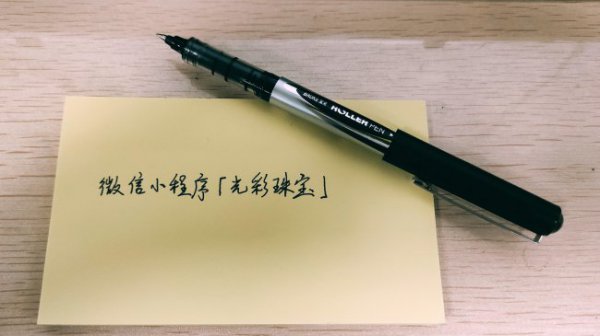 微信小程序「光彩珠宝」
ROLLER PEN